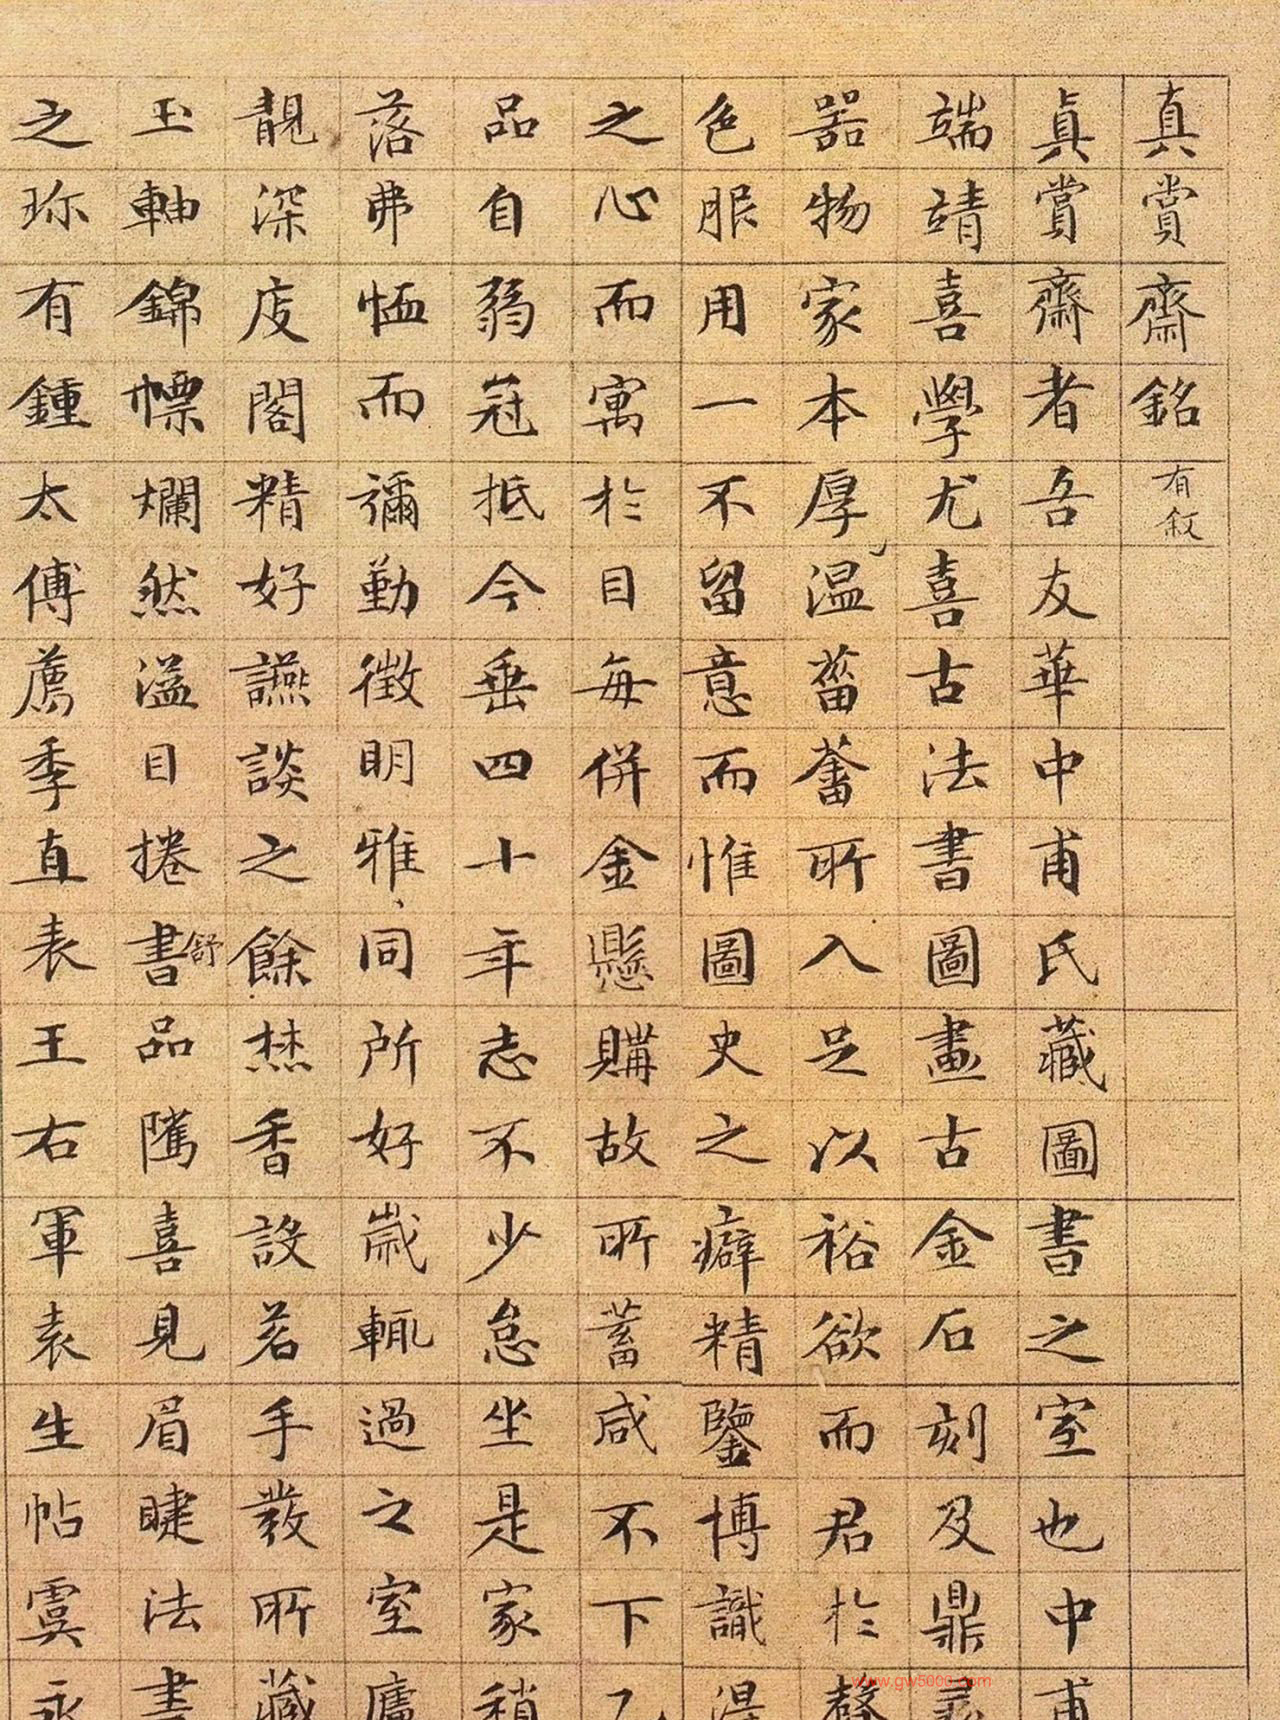 真賞齋銘有敘
真賞齋者吾友華中甫氏藏圖書之室也中甫
端靖喜學尤喜古法書圖畫古金石刻及鼎彝
器物家本厚溫菑畬所入足以裕欲而君於聲
色服用一不留意而惟圖史之癖精鑒博識得
之心而寓於目每併金懸購故所蓄咸不下乙
品自弱冠抵今垂四十年志不少怠坐是家稍
落弗恤而彌勤徵明雅同所好歲輒過之室廬
靚深庋閣精好讌談之餘焚香設茗手發所藏
玉軸錦幖爛然溢目捲書舒品隲喜見眉睫法書
之珎有鍾太傅薦季直表王右軍袁生帖虞永
www.gw5000.com